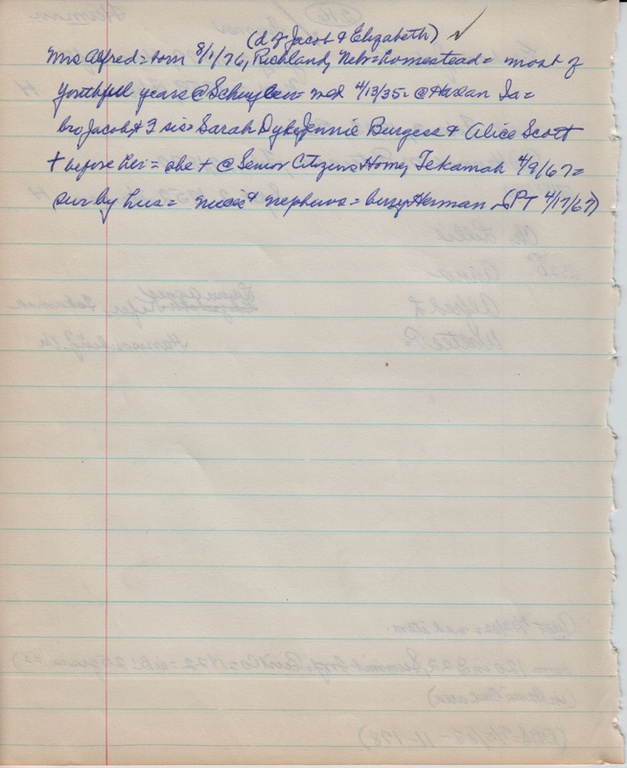 (d of Jacob & Elizabeth) ✓
Mrs Alfred = born 8/1/76, Richland, Nebr = homestead = most of
youthful years @ Schuyler = md 4/13/35 = @ Harlan Ia =
bro Jacob & 3 sis = Sarah Dyke, Jennie Burgess & Alice Scott
+ before her = she + @ Senior Citizens Home, Tekamah 4/9/67 =
sur by hus = nieces & nephews = bury Herman (PT 4/17/67)